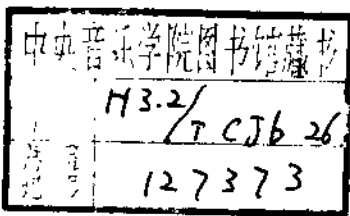 中央音乐学院图书馆藏书
H3.2/TCJb 26
127373